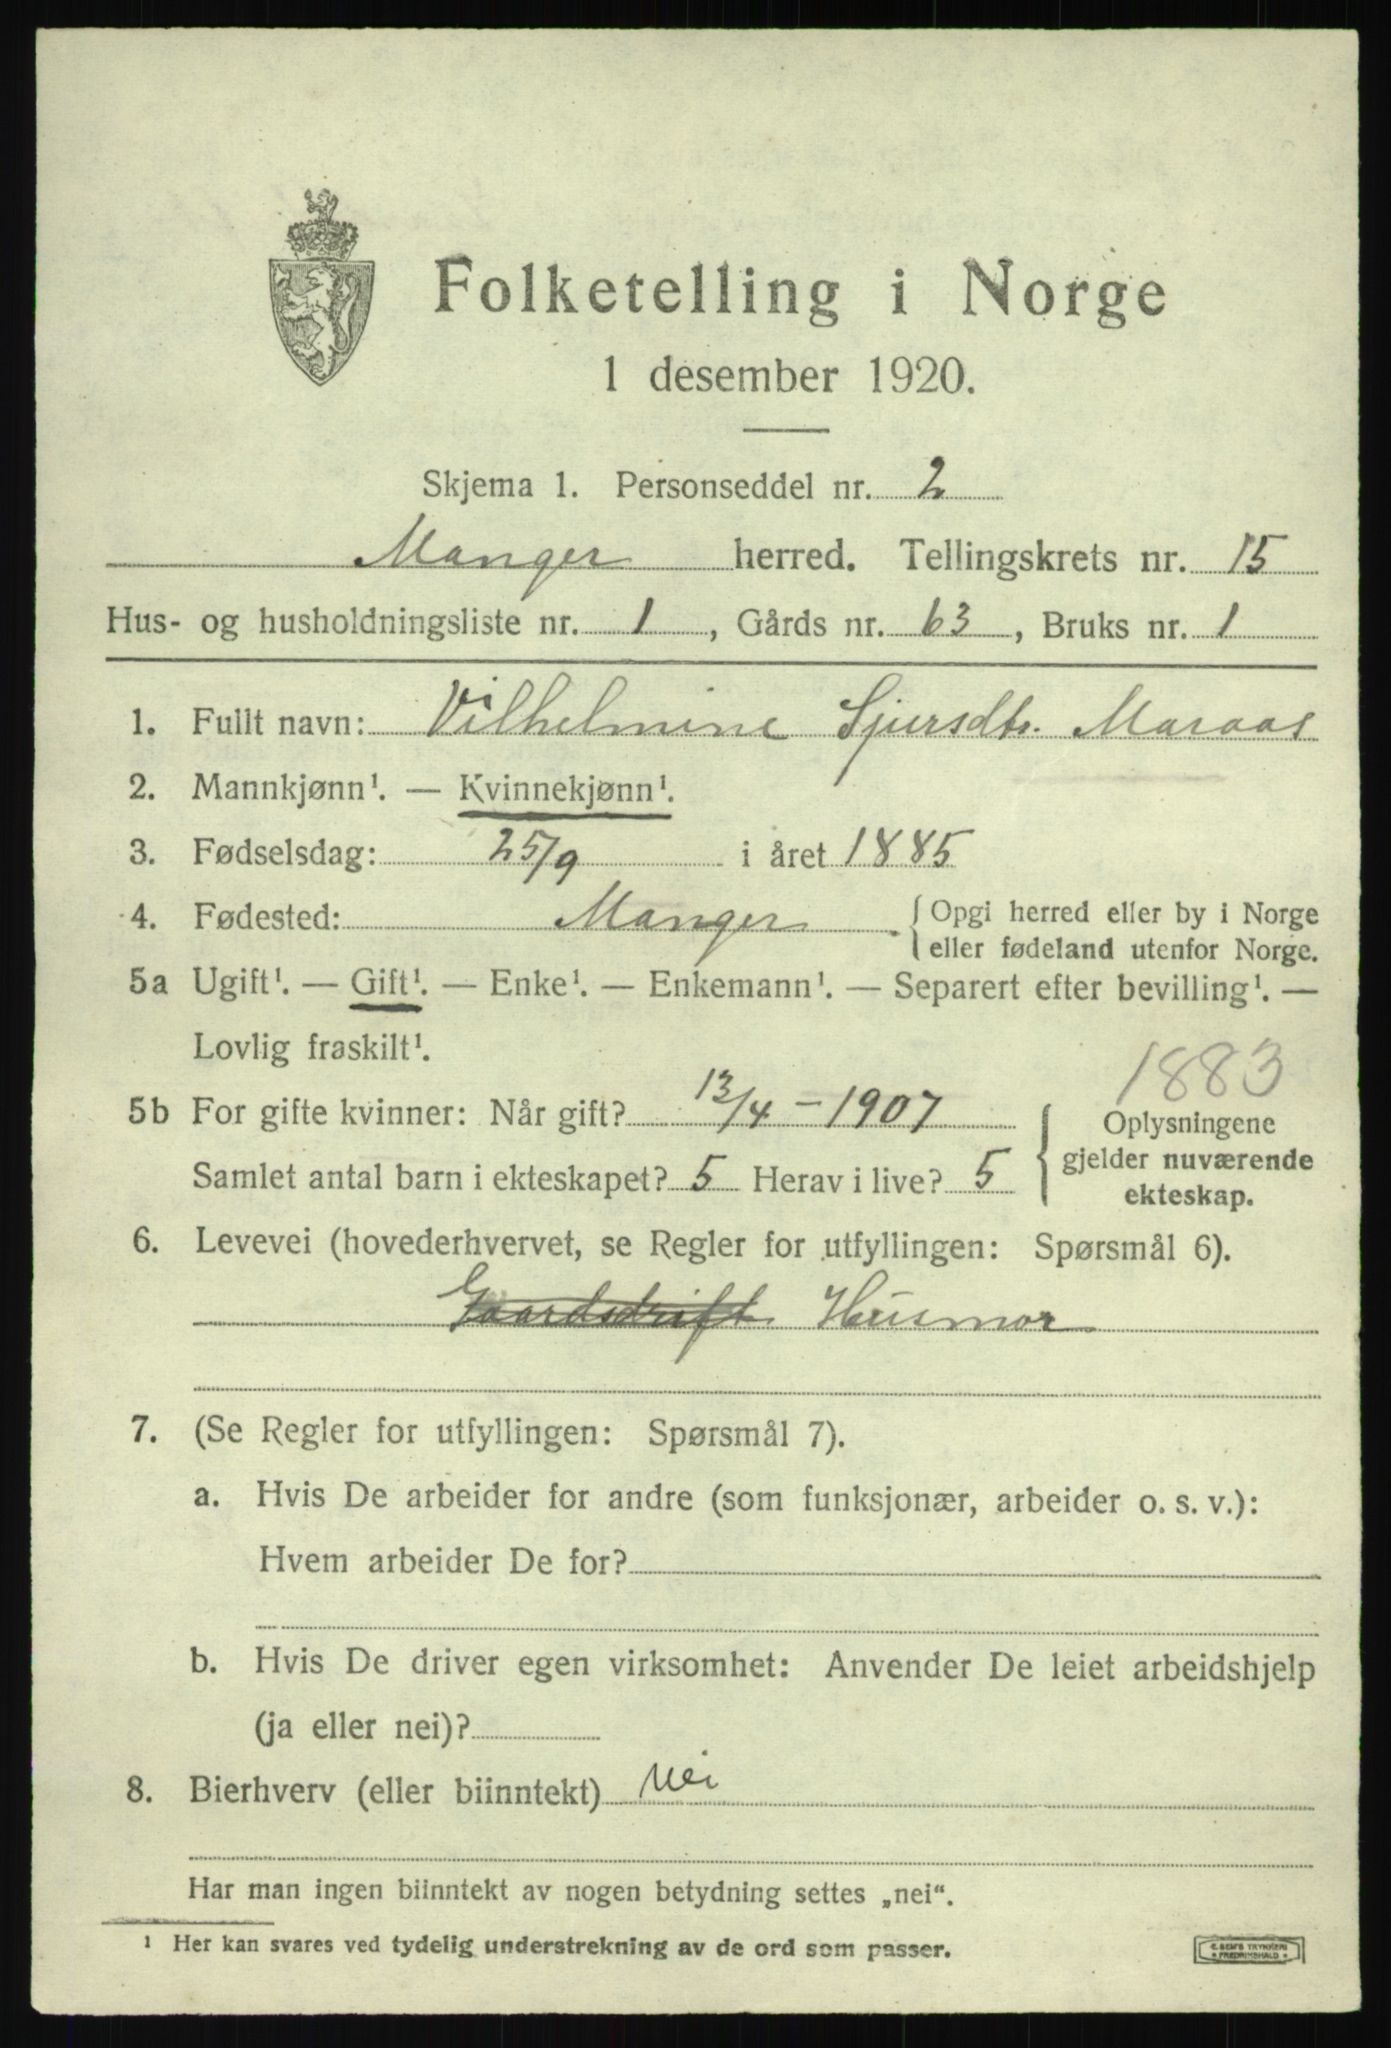 Folketelling i Norge
1 desember 1920.
Skjema 1. Personseddel nr. 2
Manger herred. Tellingskrets nr. 15
Hus- og husholdningsliste nr. 1, Gårds nr. 63, Bruks nr. 1
1. Fullt navn: Vilhelmine Sjursdtr. Maraas
2. Mannkjønn¹. — Kvinnekjønn¹.
3. Fødselsdag: 25/9 i året 1885
4. Fødested: Manger. { Opgi herred eller by i Norge
eller fødeland utenfor Norge.
5a Ugift¹. — Gift¹. — Enke¹. — Enkemann¹. — Separert efter bevilling¹. —
Lovlig fraskilt¹.
1883
5b For gifte kvinner: Når gift? 13/4 - 1907
Samlet antal barn i ekteskapet? 5 Herav i live? 5
{ Oplysningene
gjelder nuværende
ekteskap.
6. Levevei (hovederhvervet, se Regler for utfyllingen: Spørsmål 6).
Gaardsdrift Husmor
7. (Se Regler for utfyllingen: Spørsmål 7).
a. Hvis De arbeider for andre (som funksjonær, arbeider o. s. v.):
Hvem arbeider De for?
b. Hvis De driver egen virksomhet: Anvender De leiet arbeidshjelp
(ja eller nei)?
8. Bierhverv (eller biinntekt) Nei
Har man ingen biinntekt av nogen betydning settes „nei“.
¹ Her kan svares ved tydelig understrekning av de ord som passer.
E. SEM'S TRYKKERI
FREDRIKSHALD